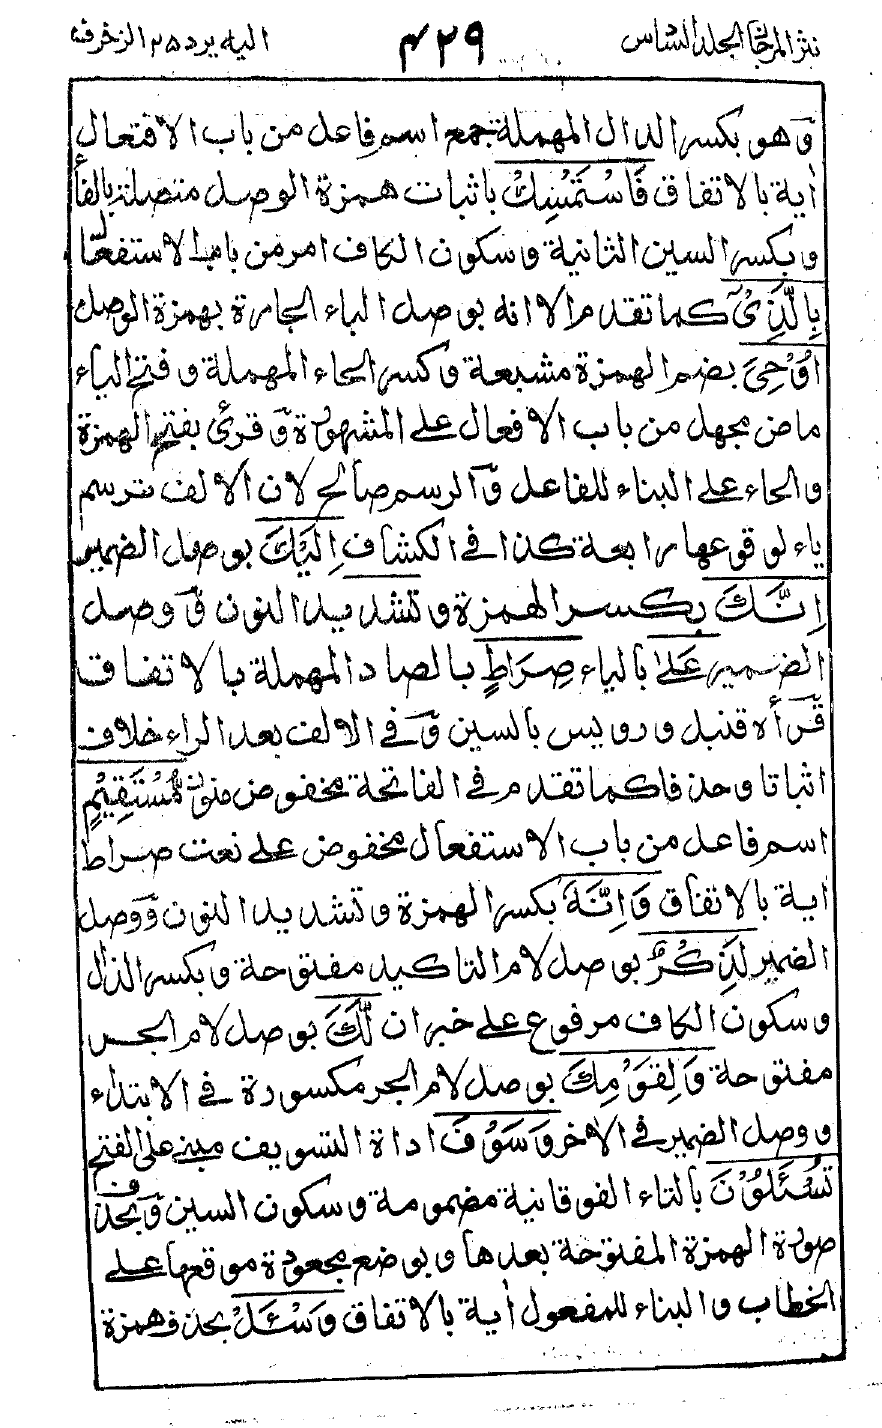 نثر المرجان المجلد السادس ٤٢٩ اليه يرد ٢٥ الزخرف
وهو بكسر الدال المهملة جمع اسم فاعل من باب الافتعال
اٰية بالاتفاق فَاسْتَمْسِكْ باثبات همزة الوصل متصلة بالفاء
وبكسر السين الثانية وسكون الكاف امر من باب الاستفعال
بِالَّذِيْٓ كما تقدم الا انه بوصل الباء الجارة بهمزة الوصل
اُوْحِيَ بضم الهمزة مشبعة وكسر الحاء المهملة وفتح الياء
ماض مجهل من باب الافعال على المشهورة وقرئ بفتح الهمزة
والحاء على البناء للفاعل والرسم صالح لان الالف ترسم
ياء لوقوعها رابعة كذا في الكشاف اِلَيْكَ بوصل الضمير
اِنَّكَ بكسر الهمزة وتشديد النون ووصل
الضمير عَلٰى بالياء صِرَاطٍ بالصاد المهملة بالاتفاق
قرأه قنبل ورويس بالسين وفي الالف بعد الراء خلاف
اثباتا وحذفا كما تقدم في الفاتحة مخفوض منون مُّسْتَقِيْمٍ
اسم فاعل من باب الاستفعال مخفوض على نعت صراط
اية بالاتفاق وَاِنَّهٗ بكسر الهمزة وتشديد النون ووصل
الضمير لَذِكْرٌ بوصل لام التاكيد مفتوحة وبكسر الذال
وسكون الكاف مرفوع على خبر ان لَّكَ بوصل لام الجر
مفتوحة وَلِقَوْمِكَ بوصل لام الجر مكسورة في الابتداء
ووصل الضمير في الاخر وَسَوْفَ اداة التسويف مبني على الفتح
تُسْـَٔلُوْنَ بالتاء الفوقانية مضمومة وسكون السين وبحذف
صورة الهمزة المفتوحة بعدها وبوضع مجعودة موقعها على
الخطاب والبناء للمفعول اٰية بالاتفاق وَسْـَٔلْ بحذف همزة